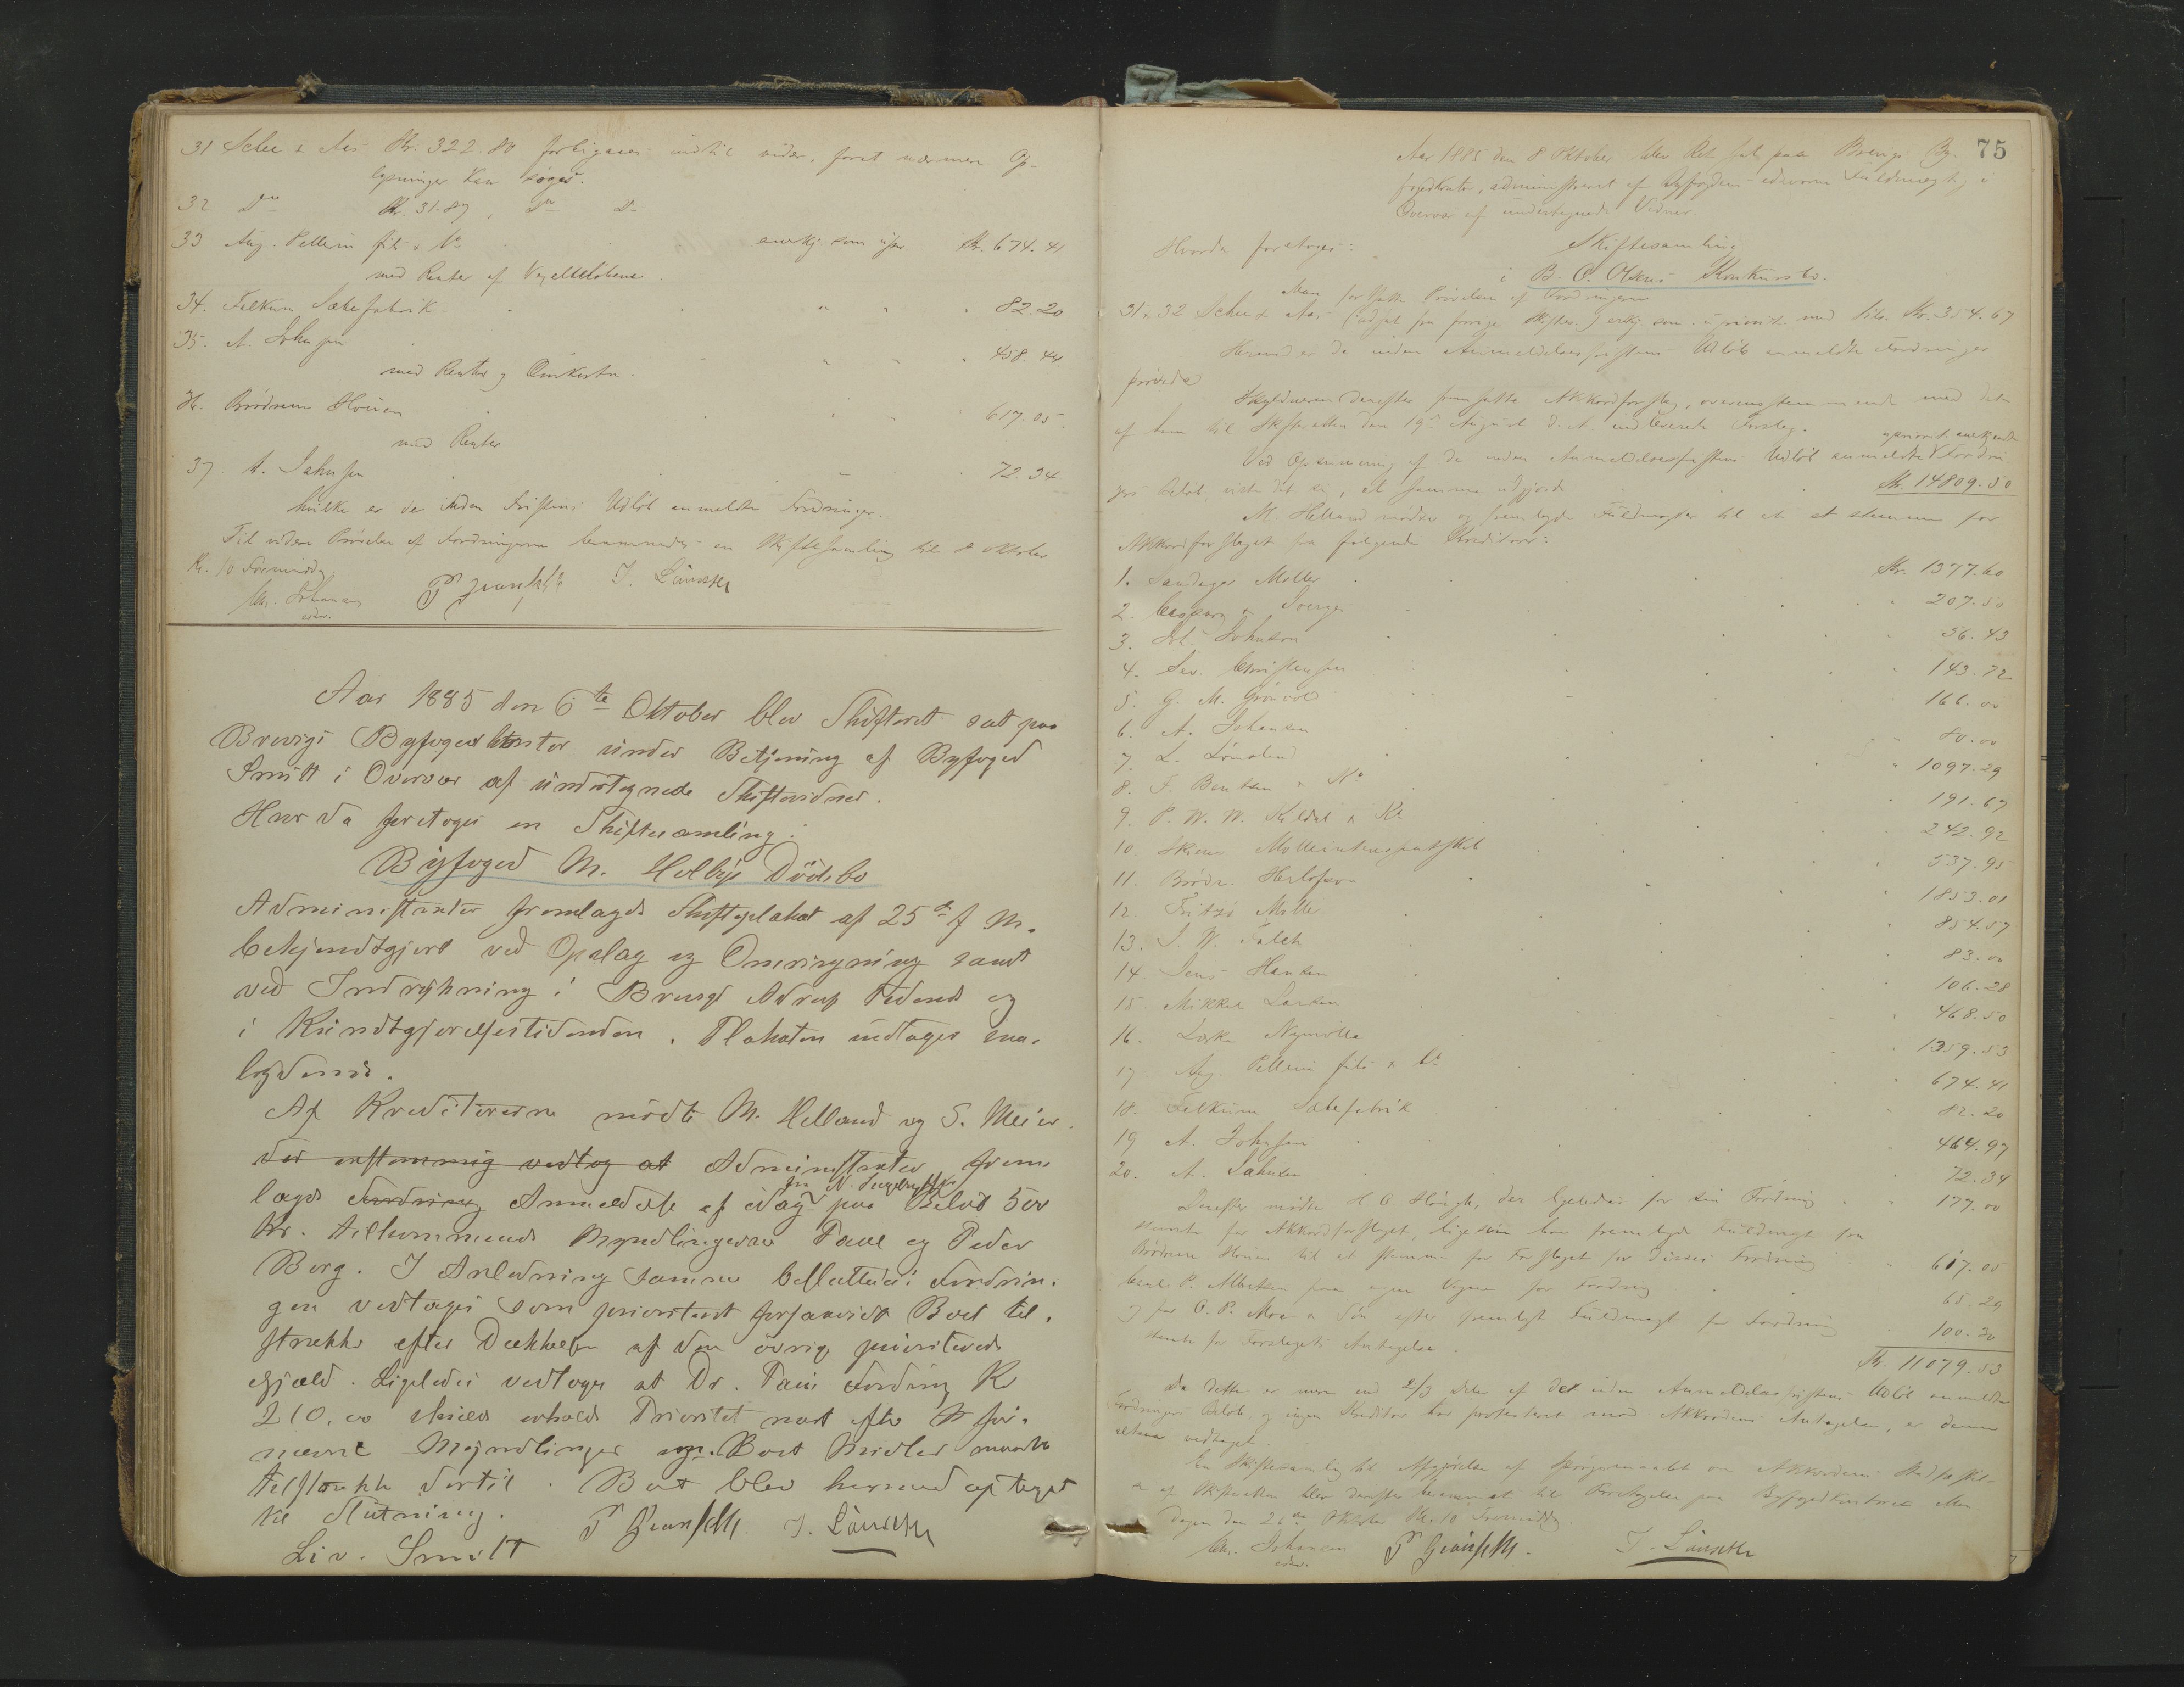 31 Schee & Aas Kr. 322.80 forbigaaes indtil videre, forat nærmere Op-
lysninger kan søges.
32 Do Kr. 31.87, Do Do
33 Aug. Pellerin fils & Co anerkj. som upr. Kr. 674.41
med Renter af Vexelbeløbene.
34. Felkum Sæbefabrik " " " 82.20
35. A. Johnsen
med Renter og Omkostn. " " " 458.44
36. Brødrene Houen " " " 617.05
med Renter
37 A. Jahnsen " " 72.34
hvilke er de inden Fristens Udløb anmeldte Fordringer.
Til videre Prøvelse af Fordringerne berammedes en Skiftesamling til 8 Oktober
Kl. 10 Formiddag.
Chr. Johansen
edsv.
J. Lauseth
Aar 1885 den 6te Oktober blev Skifteret sat paa
Brevigs Byfogedkontor under Betjening af Byfoged
Smitt i Overvær af undertegnede Skiftevidner.
Hvor da foretoges en Skiftesamling i
Byfoged M. Helbys Dødsbo
Administrator fremlagde Skifteplakat af 25de f. M.
bekjendtgjort ved Opslag og Omringning samt
ved Indrykning i Brevigs Adresse Tidende og
i Kundtgjørelsestidenden. Plakaten indtages saa-
lydende.
Af Kreditorerne mødte M. Helland og S. Meier.
der enstemmig vedtog at Administrator frem-
lagde Fordring Anmeldelse af idag fra N. paa Beløb 500
Kr. tilkommende Myndlingerne Paul og Peder
Borg. I Anledning samme besluttedes: Fordrin-
gen vedtages som prioriteret forsaavidt Boet til-
strækker efter Dækkelse af den øvrige prioriterede
Gjæld. Ligeledes vedtoges at Dr. Paus Fordring Kr
210.00 skulde erholde Prioritet næst efter for-
nævnte Myndlinger om Boets Midler maatte
tilstrække dertil. Boet blev hermed optaget
til Slutning.
J. Lauseth
Liv. Smitt
75
Aar 1885 den 8 Oktober blev Ret sat paa Brevigs By-
fogedkontor, administreret af Byfogdens edsvorne Fuldmægtig i
Overvær af undertegnede Vidner.
Hvorda foretoges: Skiftesamling
i B. O. Olsens Konkursbo.
Man fortsatte Prøvelsen af Fordringerne
31 & 32 Schee & Aas (udsat fra forrige Skiftes.) erkj. som upriorit. med tils. Kr. 354.67
Hermed er de inden Anmeldelsesfristens Udløb anmeldte Fordringer
prøvede
Skyldneren derefter fremsatte Akkordforslag, overensstemmende med det
af ham til Skifteretten den 19de August d. A. indleverede Forslag.
Ved Opsummering af de inden Anmeldelsesfristens Udløb anmeldte upriorit. anerkjendte Fordrin-
gers Beløb, viste det sig, at samme udgjorde Kr. 14809.50
M. Helland mødte og fremlagde Fuldmagter til at stemme for
Akkordforslaget fra følgende Kreditorer:
1. Møller Kr. 1377.60
2. 207.50
3. Johnson 56.43
4. Sev. Christensen 143.72
5. G. M. Grønvold 166.00
6. A. Johansen 80.00
7. L. 1097.29
8. F. Bentsen & Ko 191.67
9. P. W. W. Kildal & Ko 242.92
10 Skiens Mølleinteressentskab 537.95
11. Brødr. Herlofson 1853.01
12. Fritzø Mølle 854.57
13. J. W. Falck 83.00
14. Jens Hansen 106.28
15. Mikkel Larsen 468.50
16. Nymølle 1359.53
17 Aug. Pellerin fils & Co 674.41
18. Felkum Sæbefabrik 82.20
19 A. Johnsen 464.97
20. A. Jahnsen 72.34
Derefter mødte H O der ligeledes for sin Fordring 177.00
stemte for Akkordforslaget, ligesom han fremlagde Fuldmagt fra
Brødrene Houen til at stemme for Forslaget for disses Fordring 617.05
P. Albertsen paa egne Vegne for Fordring 65.29
og for O. P. Moe & Søn efter fremlagt Fuldmagt for Fordring 100.30
stemte for Forslagets Antagelse.
Kr. 11079.53
Da dette er mere end 2/3 Dele af det inden Anmeldelsesfristens Udløb anmeldte
Fordringers Beløb, og ingen Kreditor har protesteret mod Akkordens Antagelse, er denne
altsaa vedtaget.
En Skiftesamling til Afgjørelse af Spørgsmaalet om Akkordens Stadfæstel-
se af Skifteretten blev derefter berammet til Foretagelse paa Byfogedkontoret Man-
dagen den 26de Oktober Kl. 10 Formiddag.
Chr. Johansen
edsv.
J. Lauseth